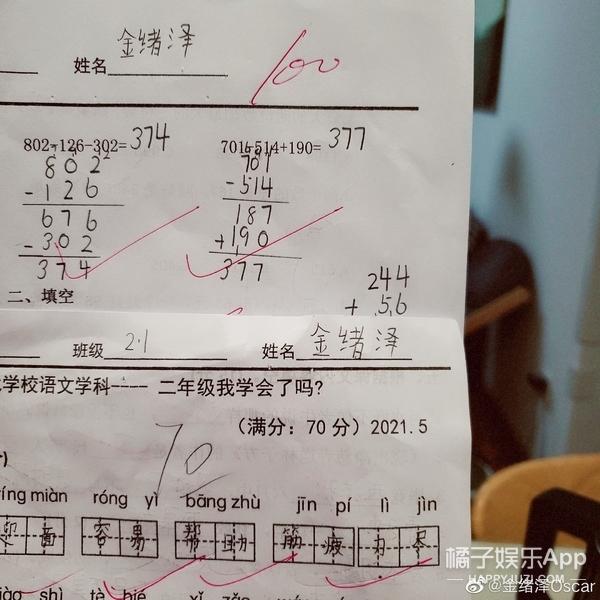 姓名 金绪泽
100
802-126-302=374 701-514+190=377
802 701
-126 -514
676 187
-302 +190
374 377
244
二、填空 + 56
班级 2.1 姓名 金绪泽
学校语文学科---- 二年级我学会了吗?
(满分:70分) 2021.5
70
íng miàn róng yì bāng zhù jīn pí lì jìn
面 容易 帮助 筋疲力尽
shì tè bié
橘子娱乐App
HAPPYJUZI.COM
@金绪泽Oscar